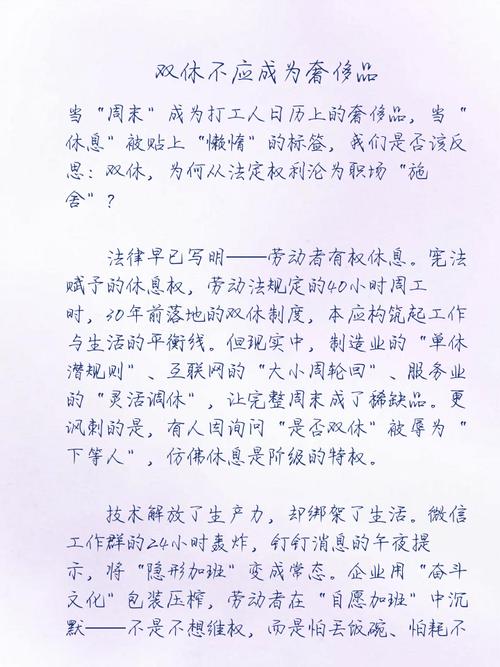 双休不应成为奢侈品
当“周末”成为打工人日历上的奢侈品，当“
休息”被贴上“懒惰”的标签，我们是否该反
思：双休，为何从法定权利沦为职场“施
舍”？
法律早已写明——劳动者有权休息。宪法
赋予的休息权，劳动法规定的40小时周工
时，30年前落地的双休制度，本应构筑起工作
与生活的平衡线。但现实中，制造业的“单休
潜规则”、互联网的“大小周轮回”、服务业
的“灵活调休”，让完整周末成了稀缺品。更
讽刺的是，有人因询问“是否双休”被辱为“
下等人”，仿佛休息是阶级的特权。
技术解放了生产力，却绑架了生活。微信
工作群的24小时轰炸，钉钉消息的午夜提
示，将“隐形加班”变成常态。企业用“奋斗
文化”包装压榨，劳动者在“自愿加班”中沉
默——不是不想维权，而是怕丢饭碗、怕耗不